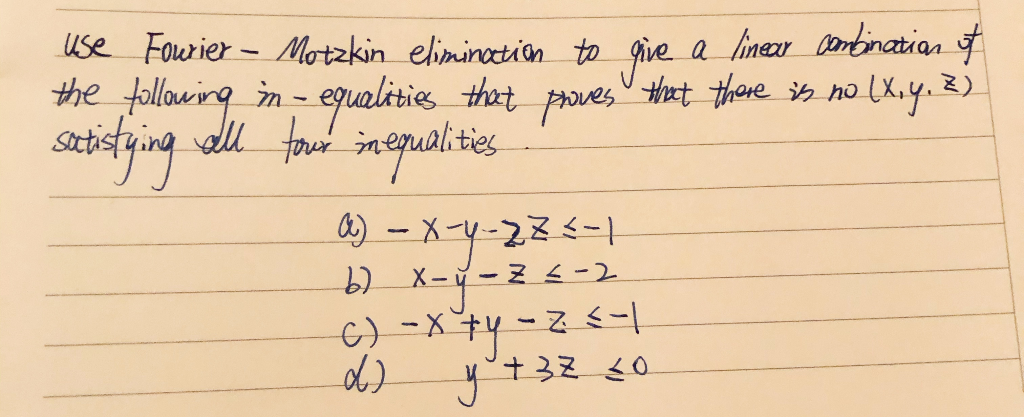 use Fourier - Motzkin elimination to give a linear combination of
the following in-equalities that proves that there is no (x, y, z)
satisfying all four inequalities.
a) -x-y-2z ≤ -1
b) x-y-z ≤ -2
c) -x+y-z ≤ -1
d) y+3z ≤ 0